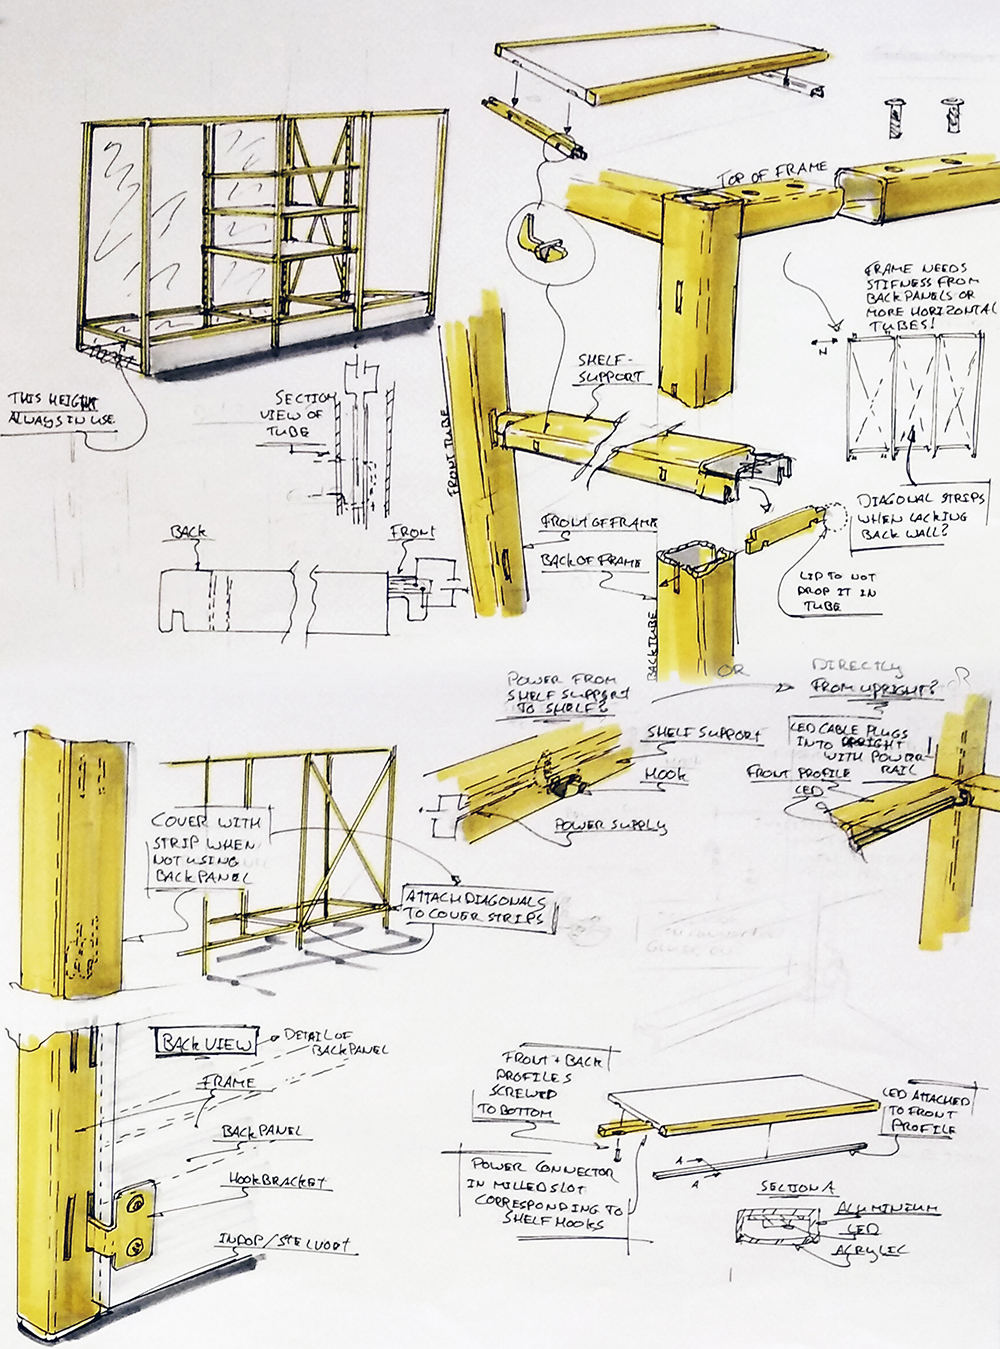 TOP OF FRAME
FRAME NEEDS
STIFNESS FROM
BACKPANELS OR
MORE HORIZONTAL
TUBES!
N
THIS HEIGHT
ALWAYS IN USE
SECTION
VIEW OF
TUBE
SHELF-
SUPPORT
FRONT TUBE
DIAGONAL STRIPS
WHEN LACKING
BACK WALL?
BACK
FRONT
FRONT OF FRAME
BACK OF FRAME
LIP TO NOT
DROP IT IN
TUBE
BACK TUBE
OR
POWER FROM
SHELF SUPPORT
TO SHELF?
DIRECTLY
FROM UPRIGHT?
SHELF SUPPORT
HOOK
POWER SUPPLY
LED CABLE PLUGS
INTO UPRIGHT
WITH POWER-
RAIL
FRONT PROFILE
LED
COVER WITH
STRIP WHEN
NOT USING
BACKPANEL
ATTACH DIAGONALS
TO COVER STRIPS
BACK VIEW
DETAIL OF
BACKPANEL
FRAME
BACKPANEL
HOOKBRACKET
FRONT + BACK
PROFILES
SCREWED
TO BOTTOM
LED ATTACHED
TO FRONT
PROFILE
POWER CONNECTOR
IN MILLED SLOT
CORRESPONDING TO
SHELF HOOKS
A
A
SECTION A
ALUMINIUM
LED
ACRYLIC